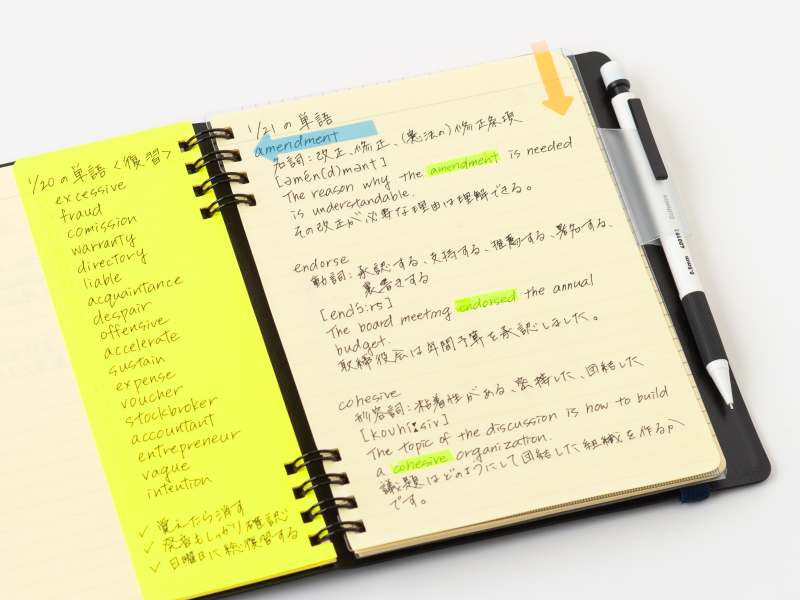 1/20の単語<復習>
excessive
fraud
comission
warranty
directory
liable
acquaintance
despair
offensive
accelerate
sustain
expense
voucher
stockbroker
accountant
entrepreneur
vague
intention
✓ 覚えたら消す
✓ 発音もしっかり確認
✓ 日曜日に総復習する
1/21の単語
amendment
名詞：改正、修正、(憲法の)修正条項
[əmén(d)mənt]
The reason why the amendment is needed
is understandable.
その改正が必要な理由は理解できる。
endorse
動詞：承認する、支持する、推薦する、署名する、
裏書きする
[endɔ́ːrs]
The board meeting endorsed the annual
budget.
取締役会は年間予算を承認しました。
cohesive
形容詞：粘着性がある、密接した、団結した
[kouhíːsiv]
The topic of the discussion is how to build
a cohesive organization.
議題はどのようにして団結した組織を作るか
です。
0.5mm